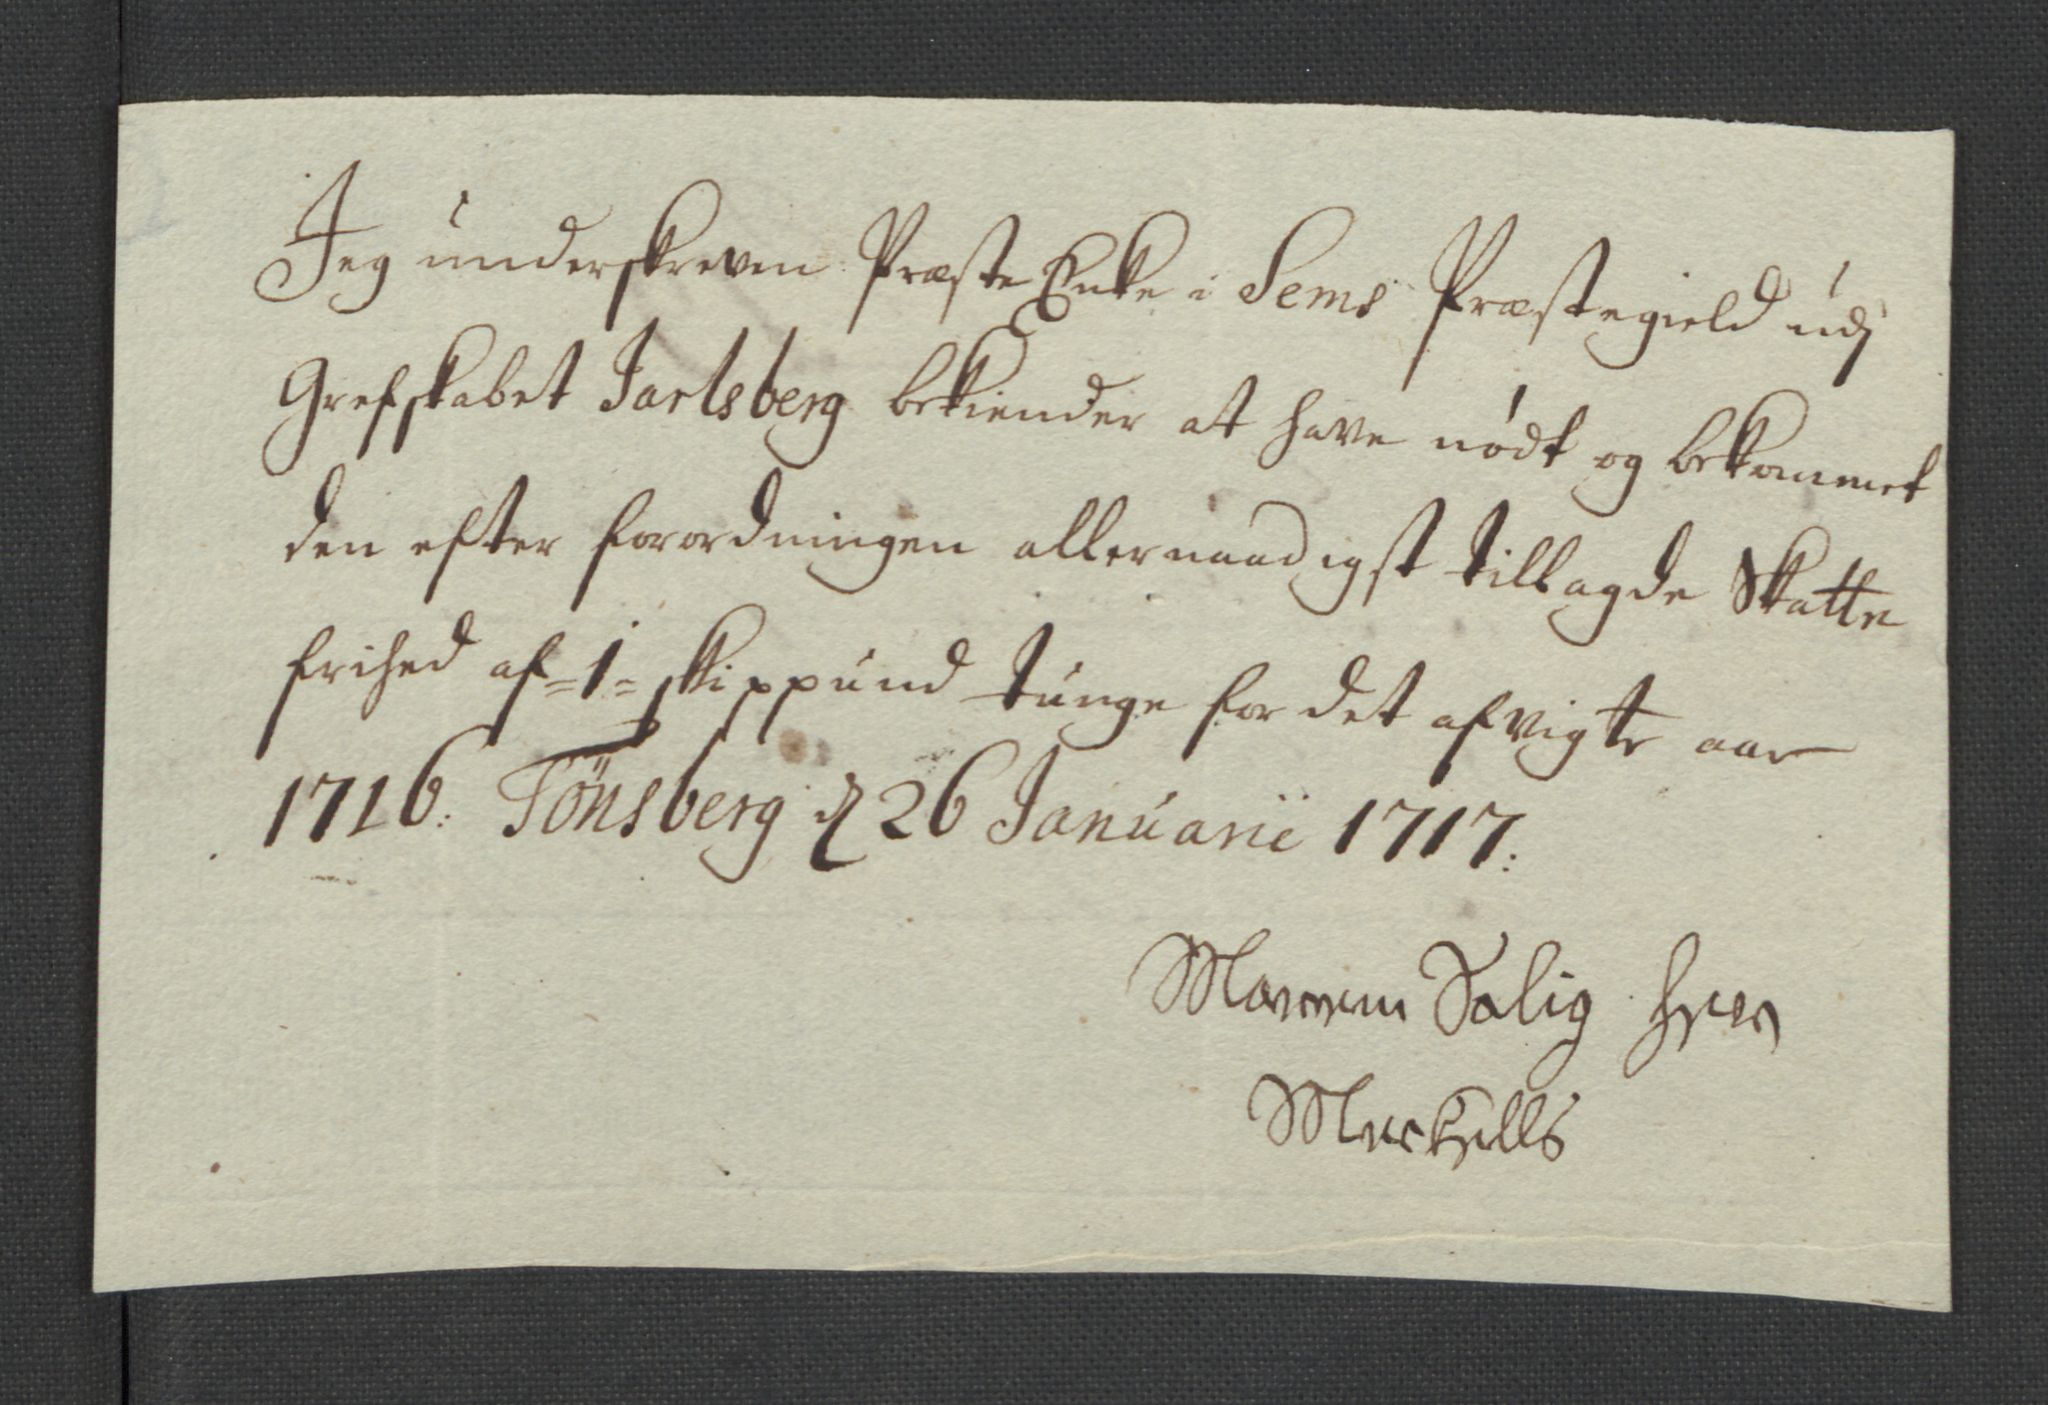 Jeg underskreven Præste Enke i Sems Præstegield udj
Grefskabet Jarlsberg bekiender at have nödt og bekommet
den efter forordningen allernaadigst tillagde Skatte
frihed af =1= skippund tunge for det afvigte aar
1716: Tönsberg d 26 Januarii 1717:
Maren Salig Her
Merkells